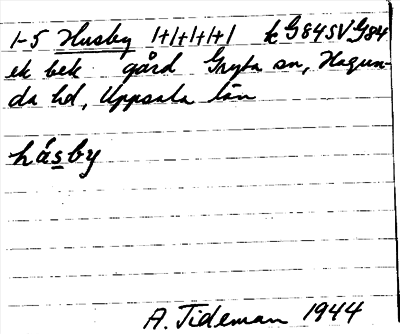 1-5 Husby 1+1+1+1+1 k G84SVG84
ek bek gård Gryta sn, Hagun-
da hd, Uppsala län
håsby
A. Tideman 1944